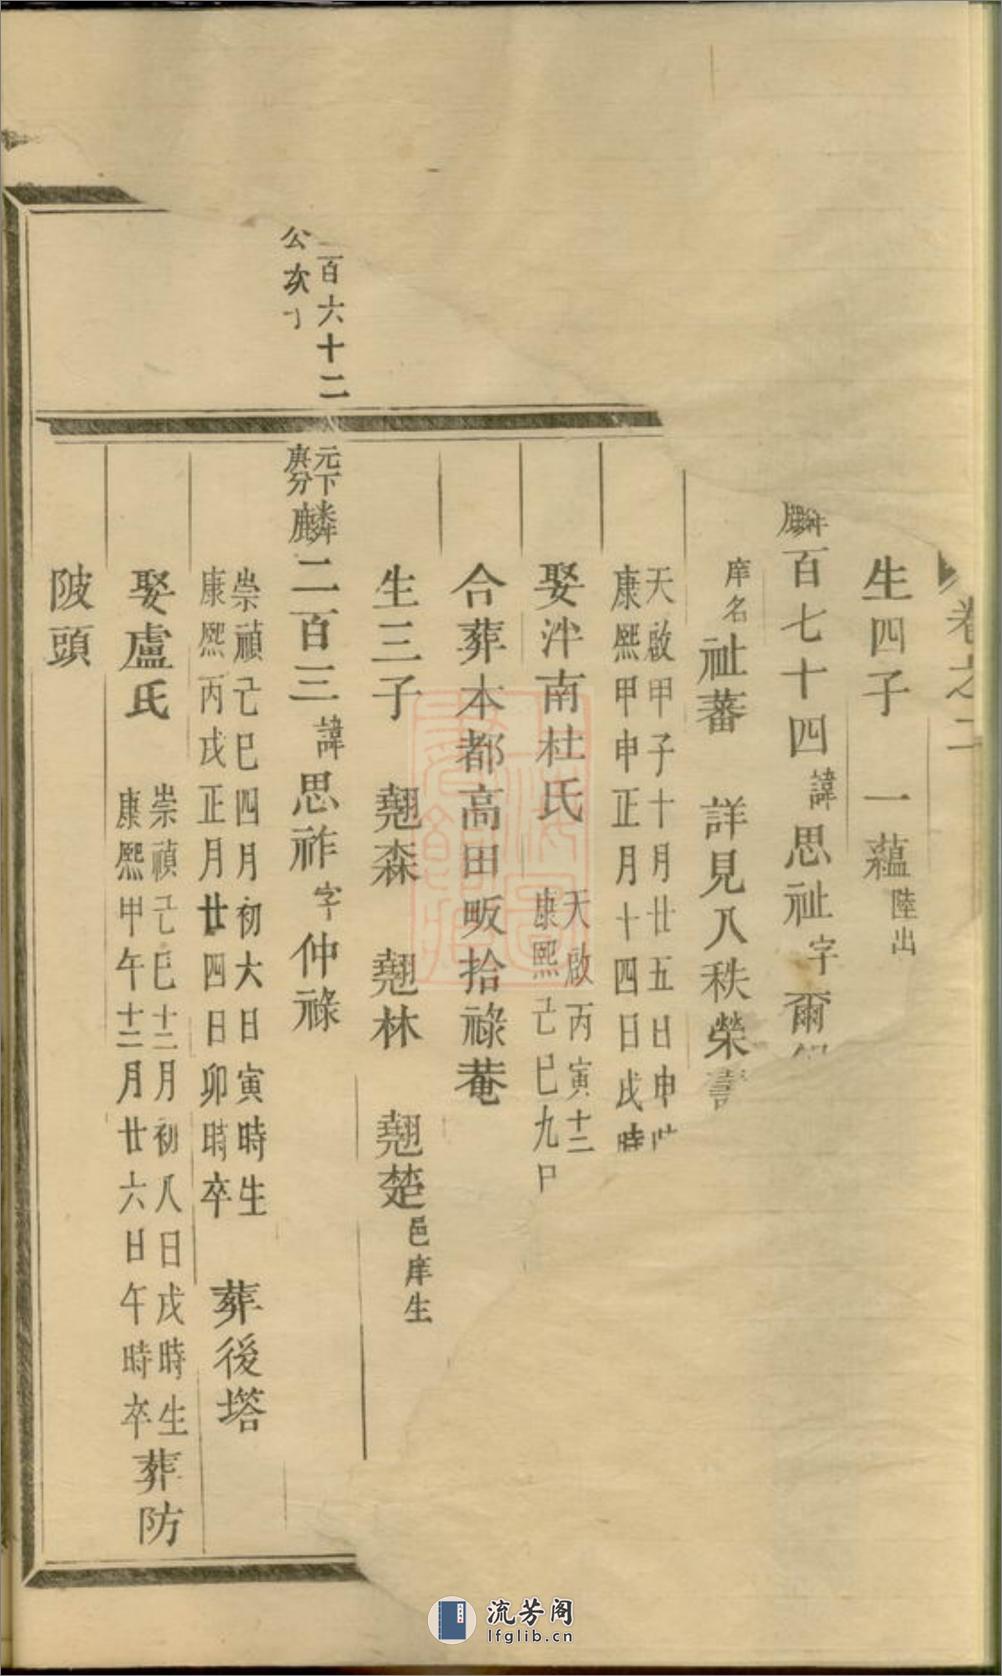 卷之二
生四子 一蘊陸出
麟百七十四諱思祉字爾
庠名祉蕃 詳見八秩榮壽
天啟甲子十月廿五日申時
康熙甲申正月十四日戌時
娶泮南杜氏 天啟丙寅十二
康熙己巳九月
合葬本都高田畈拾祿菴
生三子 翹森 翹林 翹楚邑庠生
百六十二
公次
元下
庚分
麟二百三諱思祚字仲祿
崇禎己巳四月初六日寅時生
康熙丙戌正月廿四日卯時卒 葬後塔
娶盧氏 崇禎己巳十二月初八日戌時生
康熙甲午十二月廿六日午時卒 葬防
陂頭
流芳阁
lfglib.cn